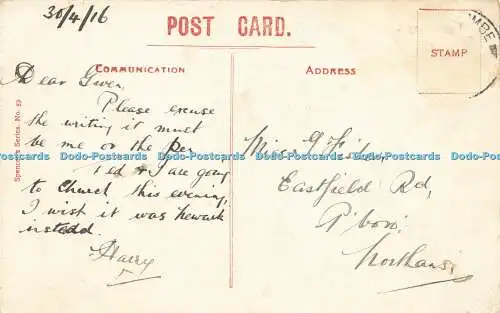 30/4/16
POST CARD.
MBE
STAMP
COMMUNICATION
ADDRESS
Spencer's Series. No. 29
Dear Gwen,
Please excuse
the writing it must
be me or the pen
Ted & I are going
to Church this evening,
I wish it was Newark
instead.
Harry
Miss G
Eastfield Rd,
P'boro'
Northants
Dodo-Postcards Dodo-Postcards Dodo-Postcards Dodo-Postcards Dodo-Postcards